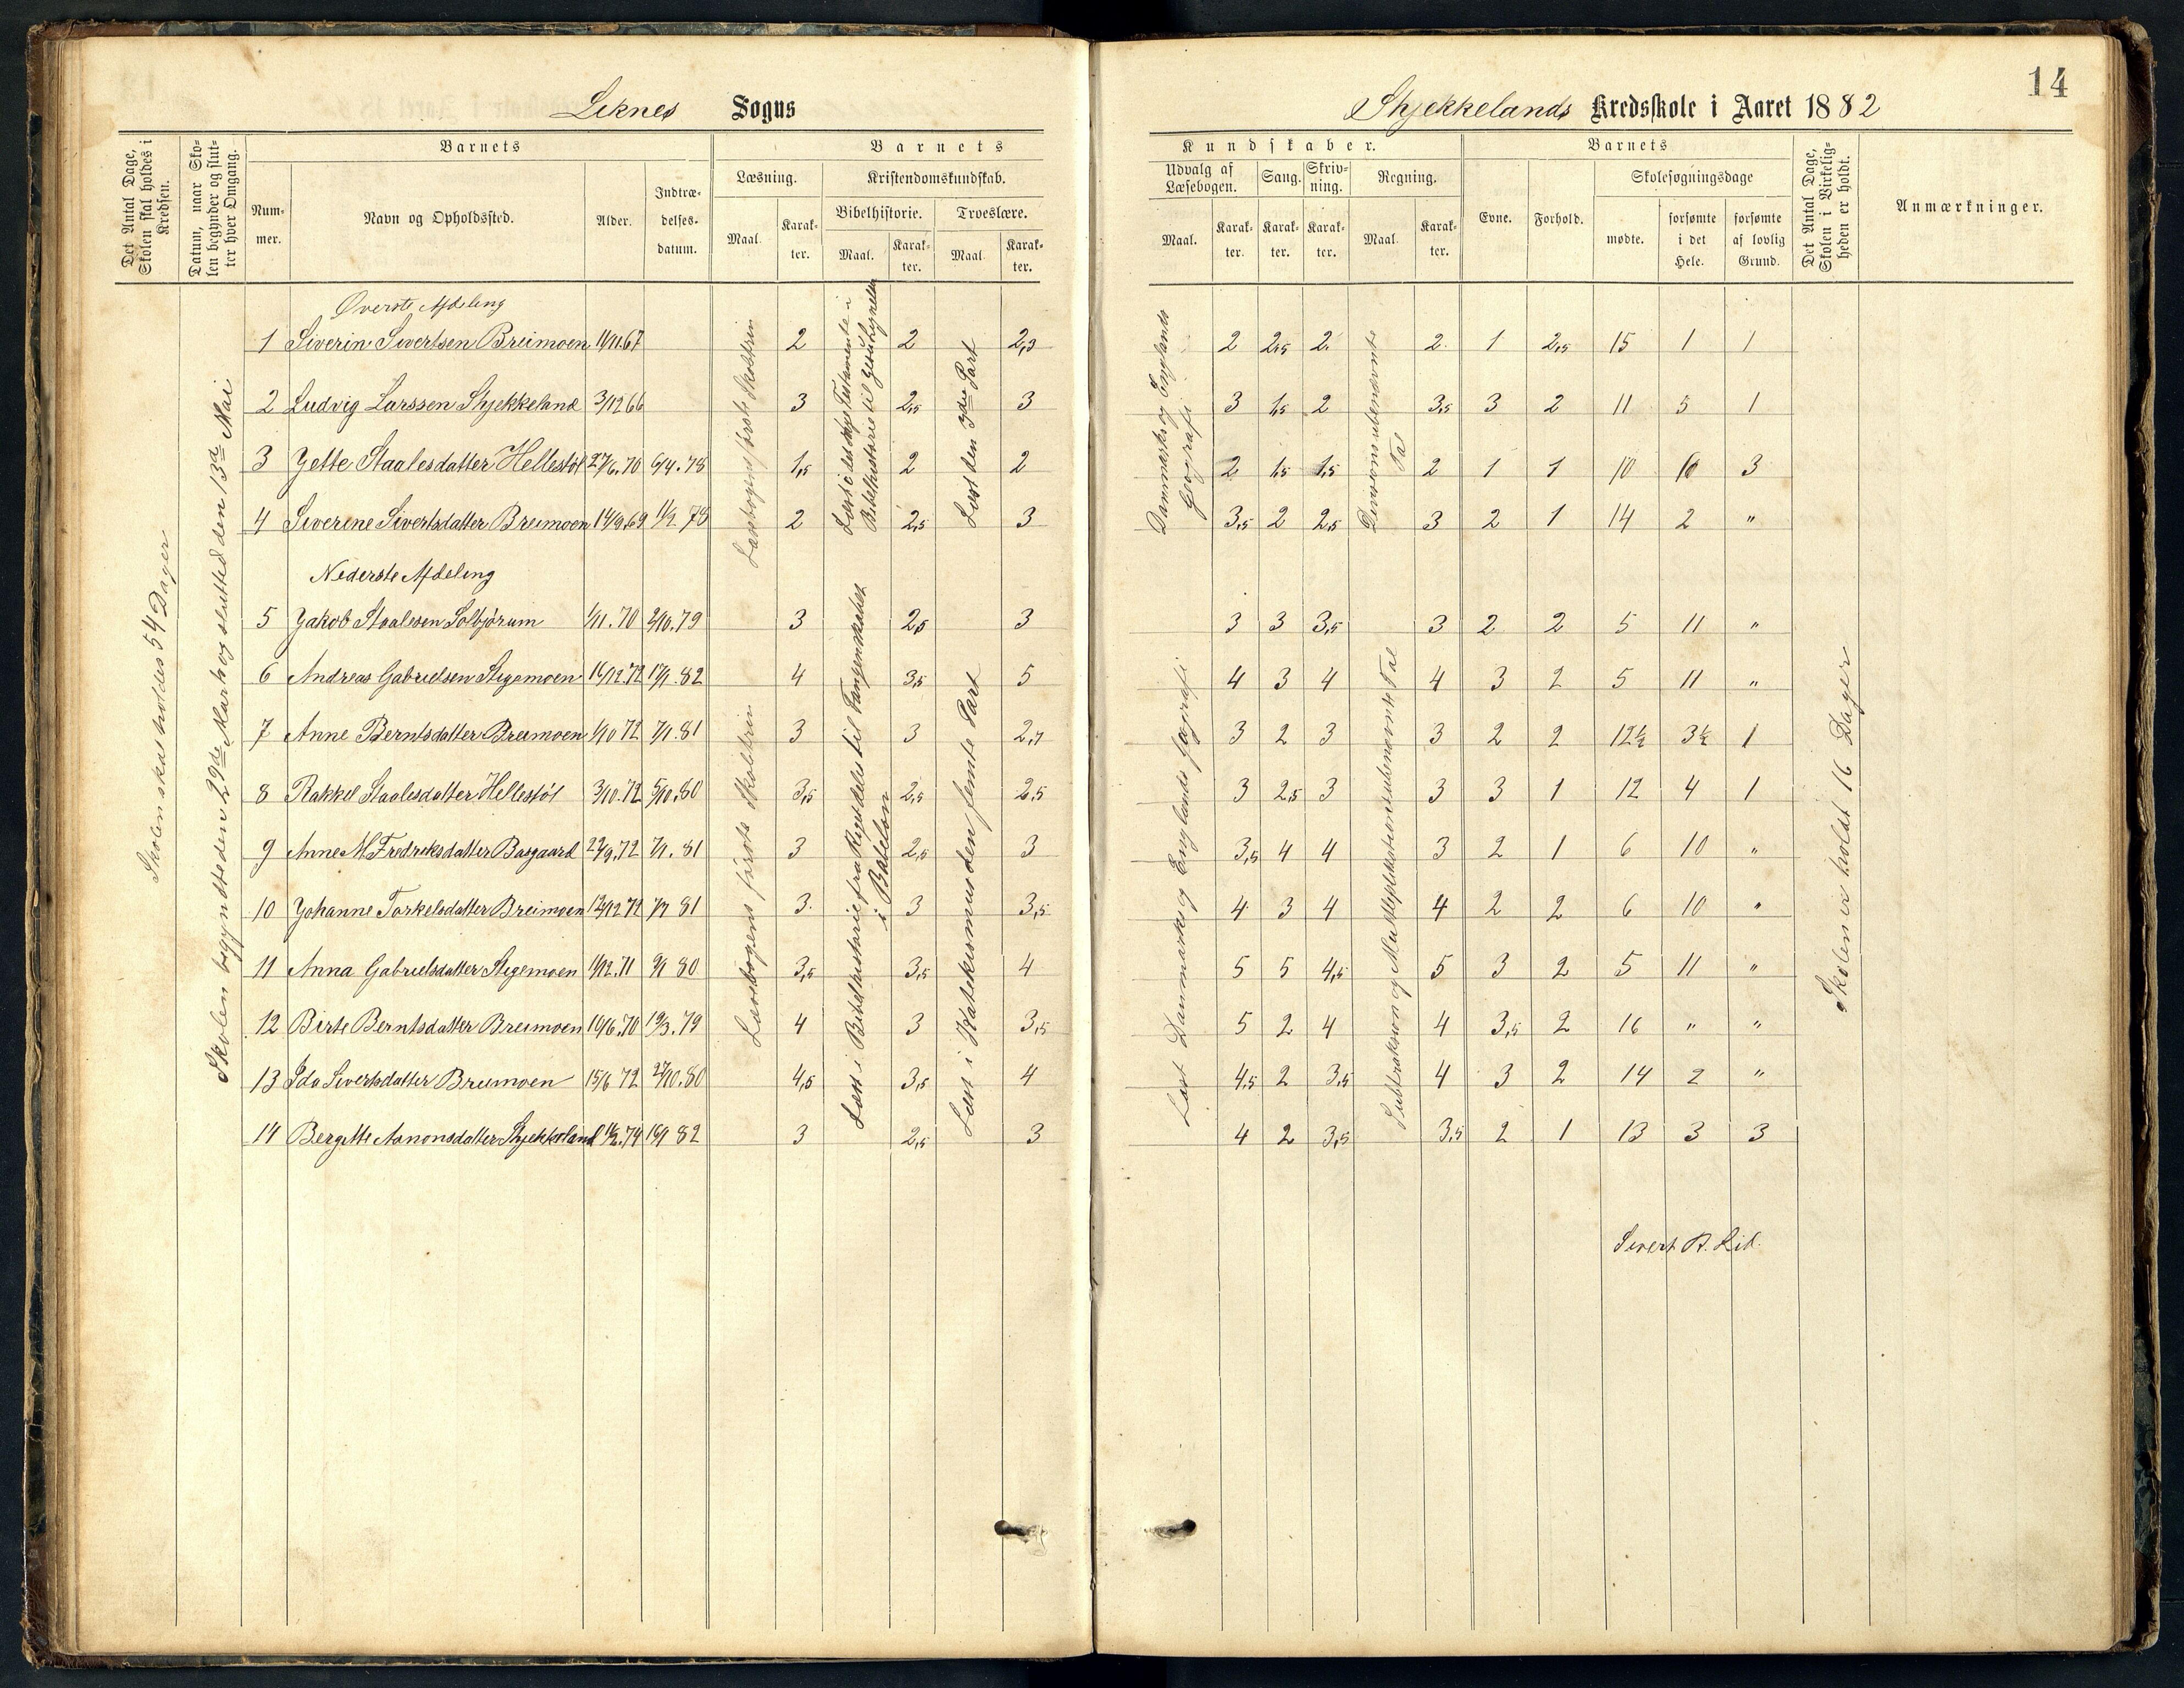 14
Leknes Sogns
Skjekkelands Kredsskole i Aaret 1882
Det Antal Dage, Skolen skal holdes i Kredsen.
Datum, naar Skolen begynder og slutter hver Omgang.
Barnets
Nummer.
Navn og Opholdssted.
Alder.
Indtrædelsesdatum.
Barnets
Læsning.
Maal.
Karakter.
Kristendomskundskab.
Bibelhistorie.
Maal.
Karakter.
Troeslære.
Maal
Karakter.
Kundskaber.
Udvalg af Læsebogen.
Maal.
Karakter.
Sang.
Karakter.
Skrivning.
Karakter.
Regning.
Maal
Karakter.
Barnets
Evne.
Forhold.
Skolesøgningsdage
mødte.
forsømte i det Hele.
forsømte af lovlig Grund.
Det Antal Dage, Skolen i Virkeligheden er holdt.
Anmærkninger.
Skolen skal holdes 54 Dager
Skolen begyndte den 29de Marh og slutted den 13de Mai
Øverste Afdeling
1 Siverin Sivertsen Breimoen 11/11.67 2 2 2,3 2 2,5 2 2 1 2,5 15 1 1
2 Ludvig Larssen Skjekkeland 3/12 66 3 2,5 3 3 1,5 2 3,5 3 2 11 5 1
3 Jette Staalesdatter Hellestøl 27/6.70 6/4.78 1,5 2 2 2 1,5 1,5 2 1 1 10 6 3
4 Siverine Sivertsdatter Breimoen 14/9.69 11/2 78 2 2,5 3 3,5 2 2,5 3 2 1 14 2 "
Læsebogens første Skoletrin
Læst i det nye Testamente i Bibelhistorie til
Læst den 3die Part
Danmarks og Englands Geografi
Divisions ubenævnte Tal
Nederste Afdeling
5 Jakob Staalesen Solbjørum 1/11.70 2/10.79 3 2,5 3 3 3 3,5 3 2 2 5 11 "
6 Andreas Gabrielsen Stigemoen 16/12.72 17/1.82 4 3,5 5 4 3 4 4 3 2 5 11 "
7 Anne Berntsdatter Breimoen 1/10 72 7/1.81 3 3 2,7 3 2 3 3 2 2 12½ 3½ 1
8 Rakkel Staalesdatter Hellestøl 3/10.72 5/10.80 3,5 2,5 2,5 3 2,5 3 3 3 1 12 4 1
9 Anne M Fredriksdatter Basgaard 22/9.72 7/1.81 3 2,5 3 3,5 4 4 3 2 1 6 10 "
10 Johanne Torkelsdatter Breimoen 12/12 72 7/1 81 3 3 3,5 4 3 4 4 2 2 6 10 "
11 Anna Gabrielsdatter Stigemoen 11/12.71 9/1 80 3,5 3,5 4 5 5 4,5 5 3 2 5 11 "
12 Birte Berntsdatter Breimoen 10/6.70 19/3.79 4 3 3,5 5 2 4 4 3,5 2 16 " "
13 Ida Sivertsdatter Breimoen 15/6 72 27/10.80 4,5 3,5 4 4,5 2 3,5 4 3 2 14 2 "
14 Bergitte Aanonsdatter Skjekkeland 14/2.74 16/1 82 3 2,5 3 4 2 3,5 3,5 2 1 13 3 3
Læsebogens første Skoletrin
Læst i Bibelhistorie fra Rigets deles til Fangenskabet i Babelon
Læst i Katekismus den femte Part
Læst Danmarks og Englands Geografi
Subtraksion og Multiplikations ubenævnte Tal
Skolen er holdt 16 Dager
Sivert B. Lid.